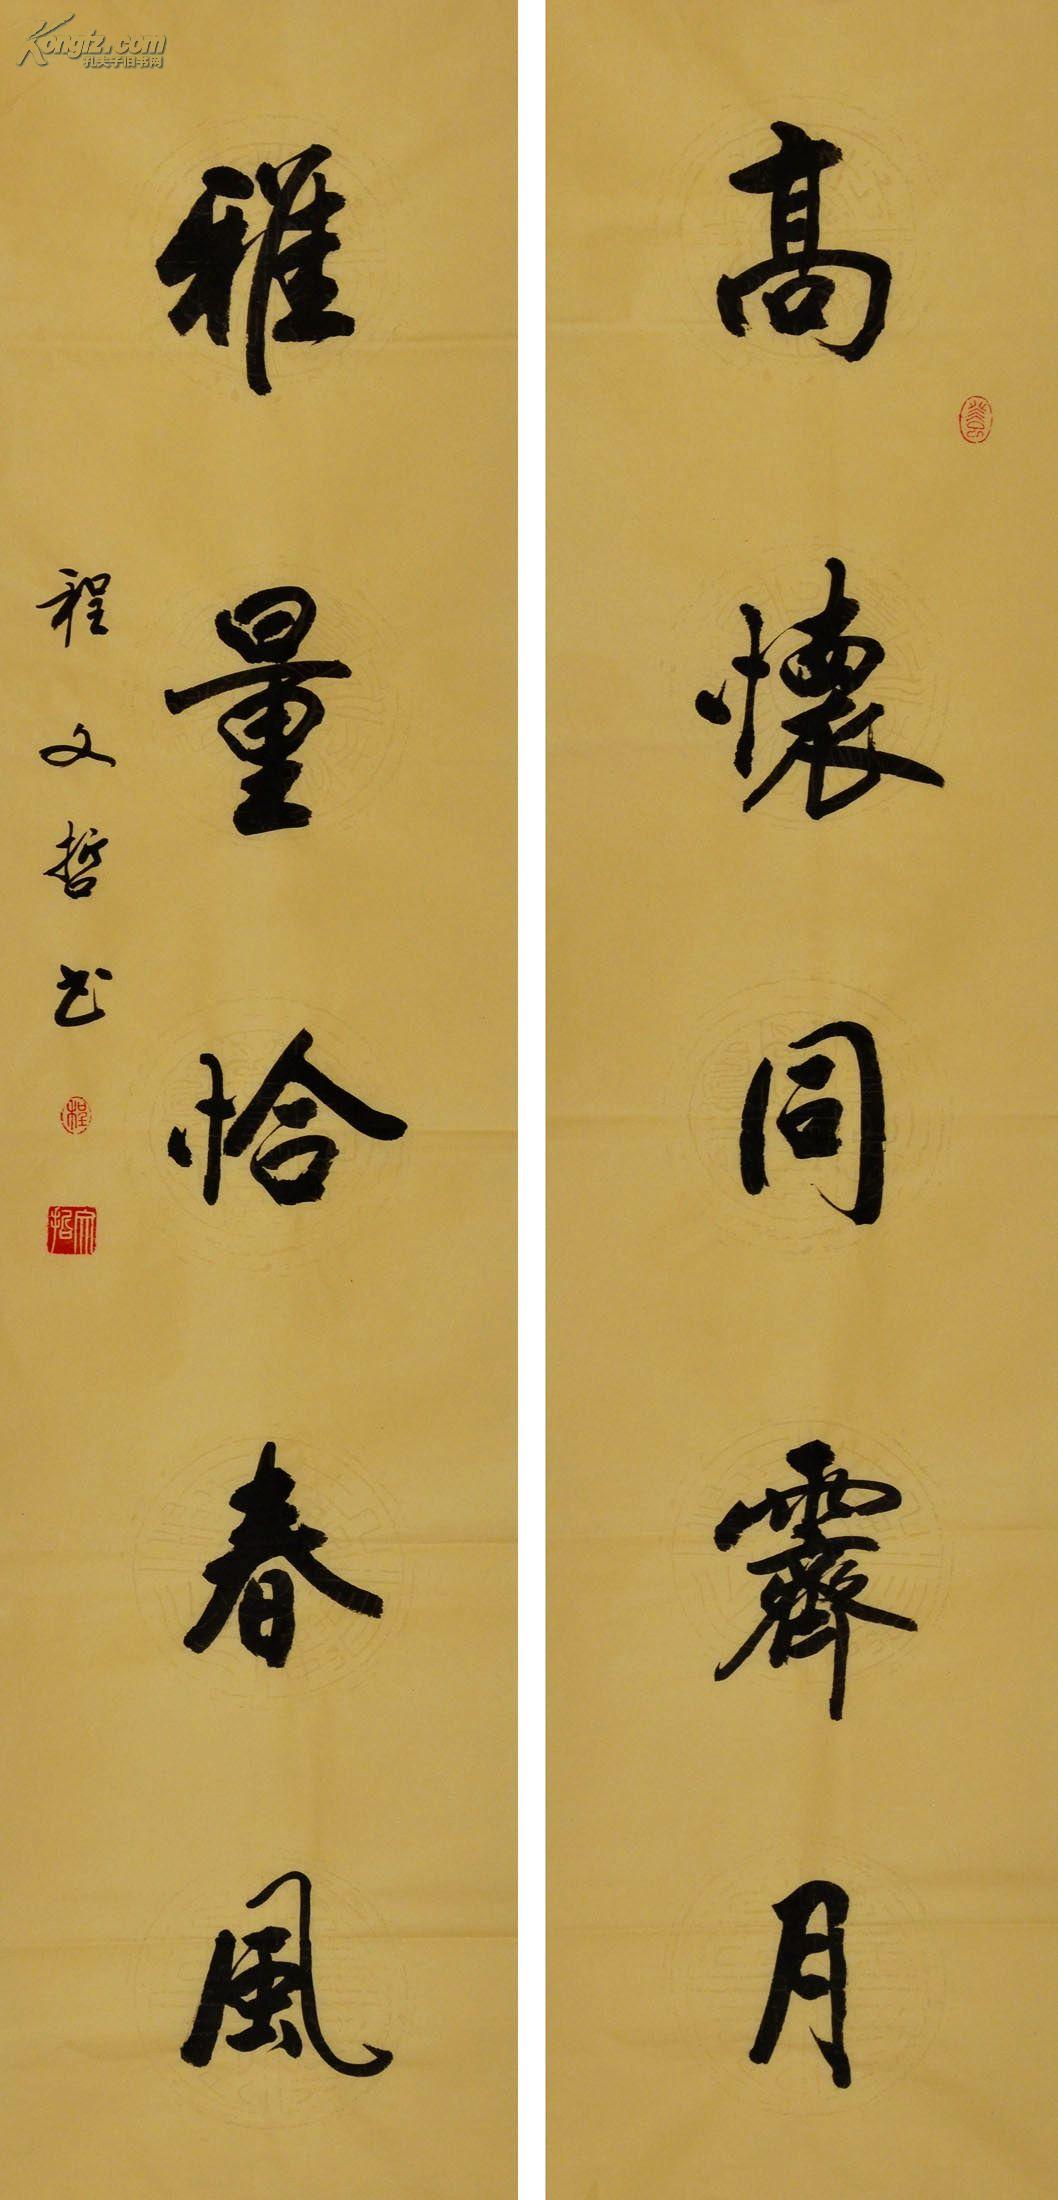 高懷同霽月
雅量恰春風
程文哲书
程
文哲
Kongfz.com
孔夫子旧书网